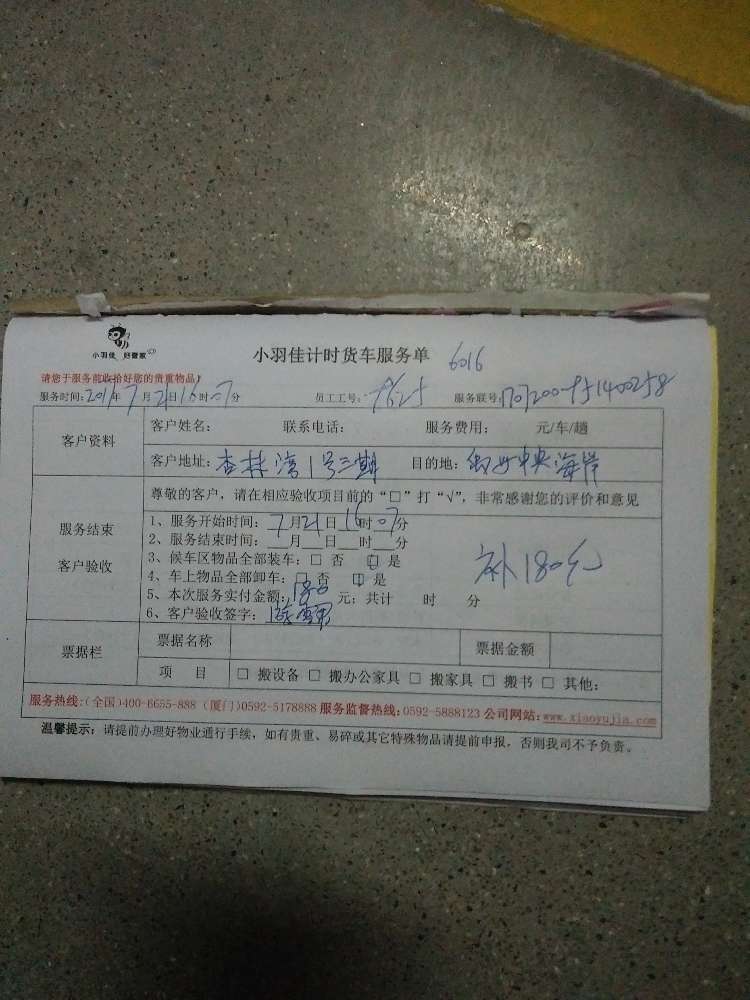 小羽佳 好管家
小羽佳计时货车服务单 6016
请您于服务前收拾好您的贵重物品!
服务时间: 2017年7月21日16时07分 员工工号: 服务联号:
客户资料
客户姓名: 联系电话: 服务费用: 元/车/趟
客户地址: 杏林湾1号三期 目的地: 中央海岸
尊敬的客户,请在相应验收项目前的“□”打“√”,非常感谢您的评价和意见
服务结束
客户验收
1、服务开始时间: 7月21日16时07分
2、服务结束时间: 月 日 时 分
3、候车区物品全部装车: □ 否 □ 是
4、车上物品全部卸车: □ 否 □ 是
5、本次服务实付金额: 180 元; 共计 时 分
6、客户验收签字:
补180元
票据栏
票据名称 票据金额
项 目 □ 搬设备 □ 搬办公家具 □ 搬家具 □ 搬书 □ 其他:
服务热线:(全国)400-6655-888 (厦门)0592-5178888 服务监督热线:0592-5888123 公司网站:www.xiaoyujia.com
温馨提示: 请提前办理好物业通行手续,如有贵重、易碎或其它特殊物品请提前申报,否则我司不予负责。